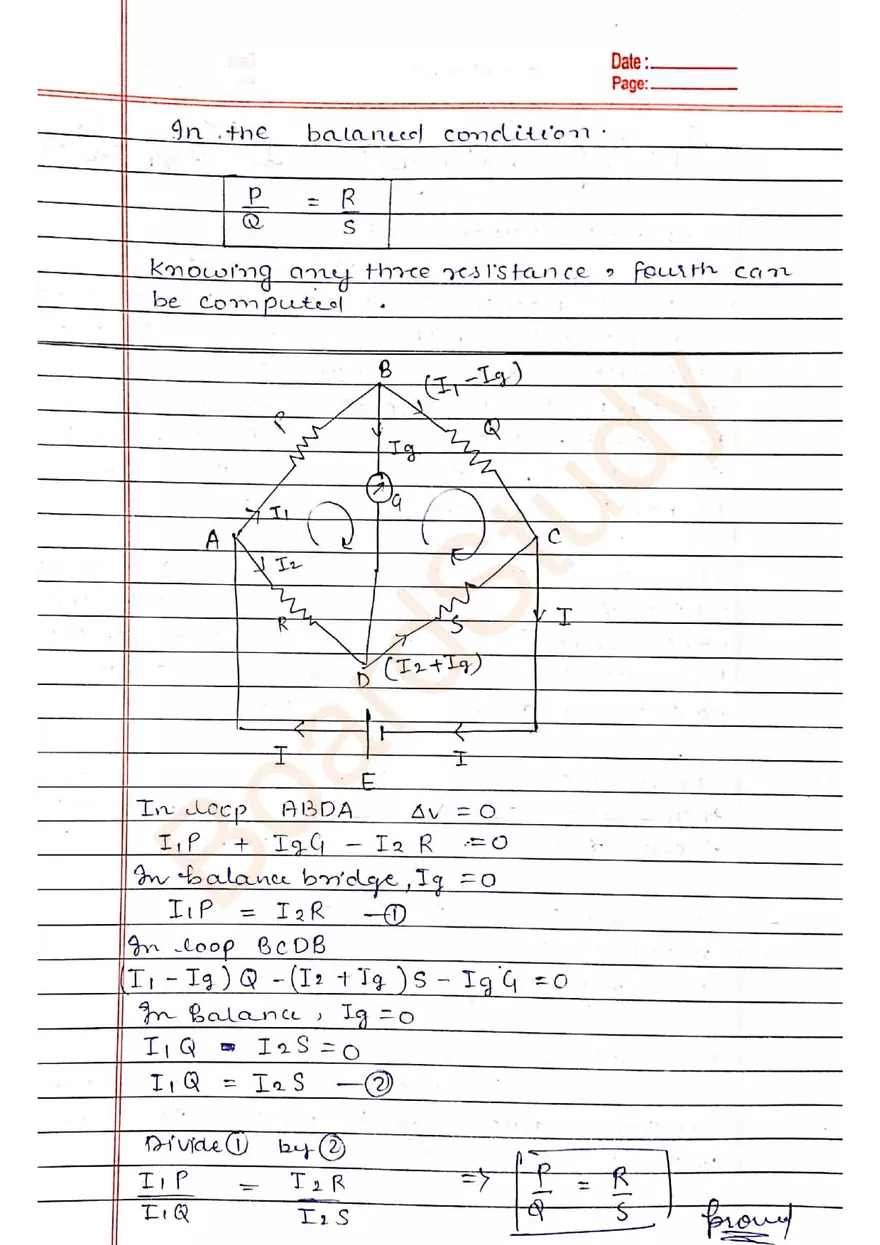 Date :
Page:
In the balanced condition.
P/Q = R/S
Knowing any three resistance, fourth can
be computed.
B
(I1 - Ig)
P
Q
Ig
G
I1
A
C
I2
R
S
I
D
(I2 + Ig)
I
I
E
BoardStudy
In loop ABDA ΔV = 0
I1P + IgG - I2 R = 0
In balance bridge, Ig = 0
I1P = I2R —①
In loop BCDB
(I1 - Ig) Q - (I2 + Ig) S - Ig G = 0
In Balance, Ig = 0
I1 Q - I2 S = 0
I1 Q = I2 S —②
Divide ① by ②
I1 P / I1 Q = I2 R / I2 S => P/Q = R/S
proved